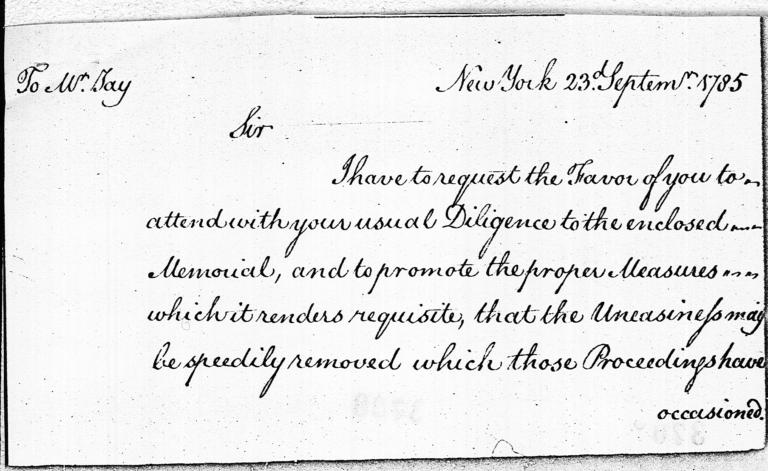 To Mr. Jay
New York 23d. Septemr. 1785
Sir
I have to request the Favor of you to
attend with your usual Diligence to the enclosed
Memorial, and to promote the proper Measures
which it renders requisite, that the Uneasiness may
be speedily removed which those Proceedings have
occasioned.